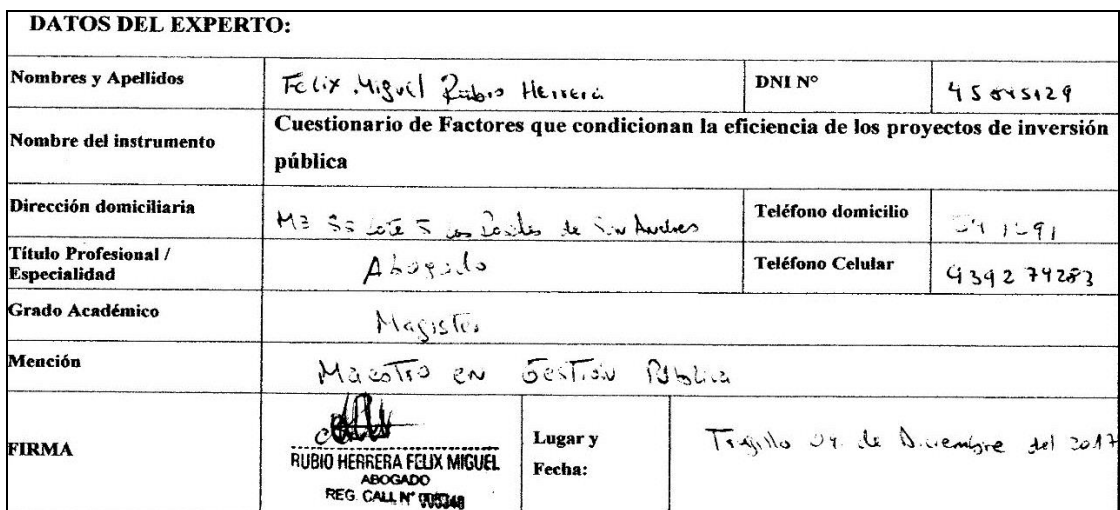 DATOS DEL EXPERTO:
Nombres y Apellidos Felix Miguel Rubio Herrera DNI N°
Nombre del instrumento Cuestionario de Factores que condicionan la eficiencia de los proyectos de inversión
pública
Dirección domiciliaria Lote 5 de San Andres Teléfono domicilio
Título Profesional /
Especialidad Abogado Teléfono Celular 939274283
Grado Académico Magister
Mención Maestro en Gestión Pública
FIRMA RUBIO HERRERA FELIX MIGUEL
ABOGADO
REG. CALL N°
Lugar y
Fecha: Trujillo 04 de Diciembre del 2017